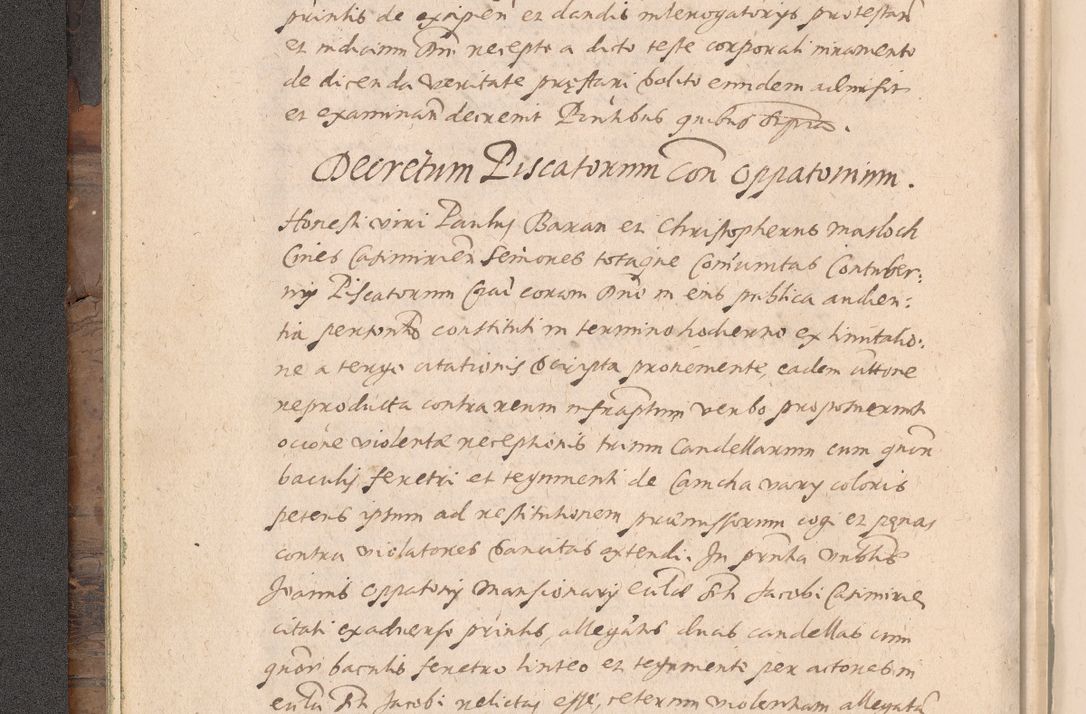 printis de excipien et dandis interrogatorys protestan
et indicium Dni recepto a dicto teste corporali iuramento
de dicenda veritate pręstari solito eundem admisit
et examinan decrevit Pntibus quibus supra.
Decretum Piscatorum Con Oppatonium.
Honesti viri Paulus Baran et Christopherus Masloch
Cives Casimirien Seniores totaque Comunitas Contuber:
nÿ Piscatorum coram Dno in eius publica audien:
tia personłr constituti in termino hodierno ex limitatio:
ne a tergo citationis scripta proveniente, eadem cittone
reproducta contra reum infrascptum verbo proposuerunt
occione violentæ receptionis trium Candellarum cum
baculis feretri et tegumenti de Camcha vary coloris
petens ipsum ad restitutionem præmissorum cogi et pęnas
contra violatores sancitas extendi. In pruta
Joannis Oppatony Mansionary Sti Jacobi Casimirien
citati ex adverso printis, allegans duas candellas cum
baculis feretro linteo et tegumento per actores in
Sti Jacobi relictas esse, ceterum violentiam